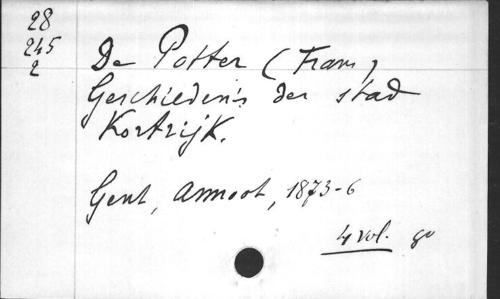 28
245
2
De Potter (Frans)
Geschiedenis der stad
Kortrijk.
Gent, Annoot, 1873-6
4 vol. go